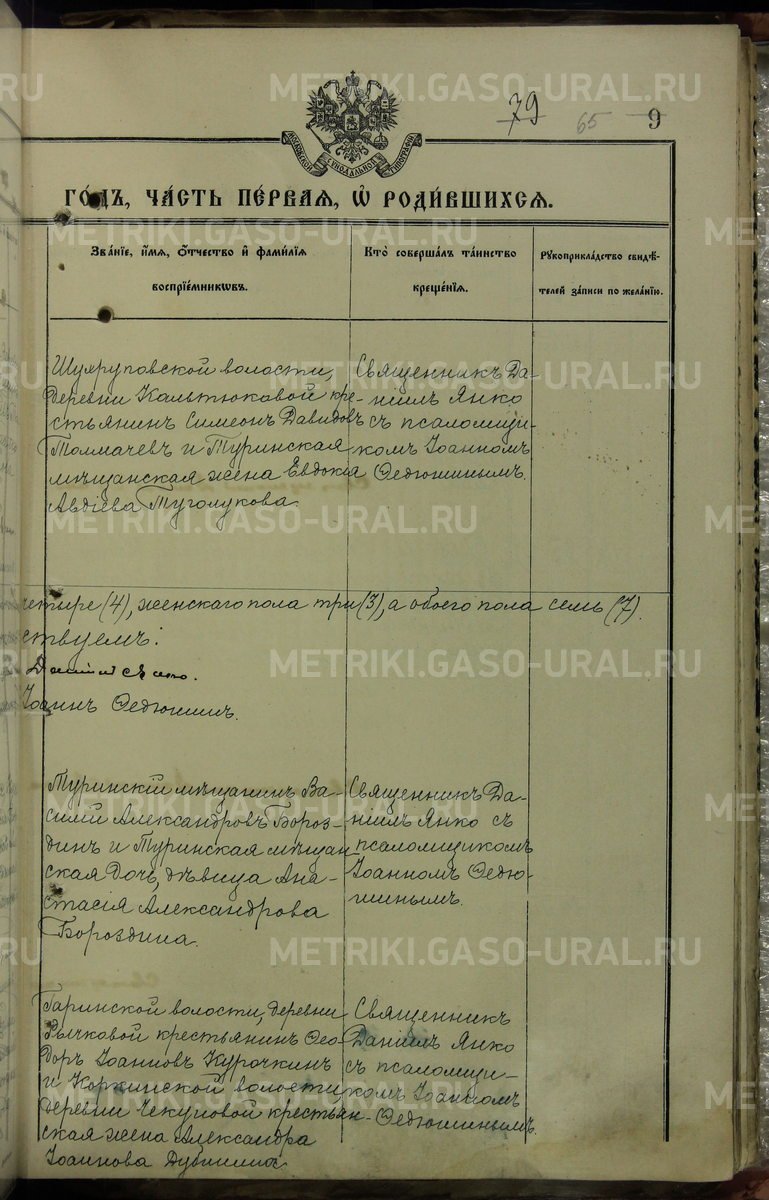 79 65 9
МОСКОВСКОЙ СѴНОДАЛЬНОЙ ТИПОГРАФІИ
ГО́ДЪ, ЧА́СТЬ ПЕ́РВАЯ, Ѡ҆ РОДИ́ВШИХСЯ.
Зва́нїе, и҆́мя, ѻ҆́тчество и҆ фами́лїя
воспрїе́мникѡвъ.
Кто̀ соверша́лъ та́инство
креще́нїя.
Рꙋкоприкла́дство свидѣ́-
телей за́писи по жела́нїю.
Шухруповской волости,
деревни Калтюковой кре-
стьянинъ Симеонъ Давидовъ
Толмачевъ и Туринская
мѣщанская жена Евдокія
Авдіева Туголукова.
Священникъ Да-
ніилъ Янко
съ псаломщи-
комъ Іоанномъ
Федюшинымъ.
четыре (4), женскаго пола три (3), а обоего пола семь (7).
ствуемъ:
Даніилъ Янко.
Іоаннъ Федюшинъ.
Туринскій мѣщанинъ Ва-
силій Александровъ Бороз-
динъ и Туринская мѣщан
ская дочь, дѣвица Ана-
стасія Александрова
Бороздина.
Священникъ Да-
ніилъ Янко съ
псаломщикомъ
Іоанномъ Федю-
шинымъ.
Гаринской волости, деревни
Рычковой крестьянинъ Ѳео-
доръ Іоанновъ Курочкинъ
и Коркинской волости
деревни Чекуновой крестьян-
ская жена Александра
Іоаннова
Священникъ
Даніилъ Янко
съ псаломщи-
комъ Іоанномъ
Федюшинымъ.
METRIKI.GASO-URAL.RU